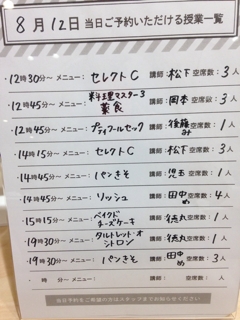 8月12日 当日ご予約いただける授業一覧
・12時30分～ メニュー: セレクトC 講師: 松下 空席数: 3人
・12時45分～ メニュー: 料理マスター3 薬食 講師: 岡本 空席数: 3人
・12時45分～ メニュー: プティフールセック 講師: 後藤み 空席数: 1人
・14時15分～ メニュー: セレクトC 講師: 松下 空席数: 3人
・14時45分～ メニュー: パンきそ 講師: 児玉 空席数: 1人
・14時45分～ メニュー: リッシュ 講師: 田中め 空席数: 4人
・15時15分～ メニュー: ベイクドチーズケーキ 講師: 徳丸 空席数: 1人
・19時30分～ メニュー: タルトレット・オ・シトロン 講師: 徳丸 空席数: 1人
・19時30分～ メニュー: パンきそ 講師: 田中め 空席数: 3人
・ 時 分～ メニュー: 講師: 空席数: 人
当日予約をご希望の方はスタッフまでお知らせください